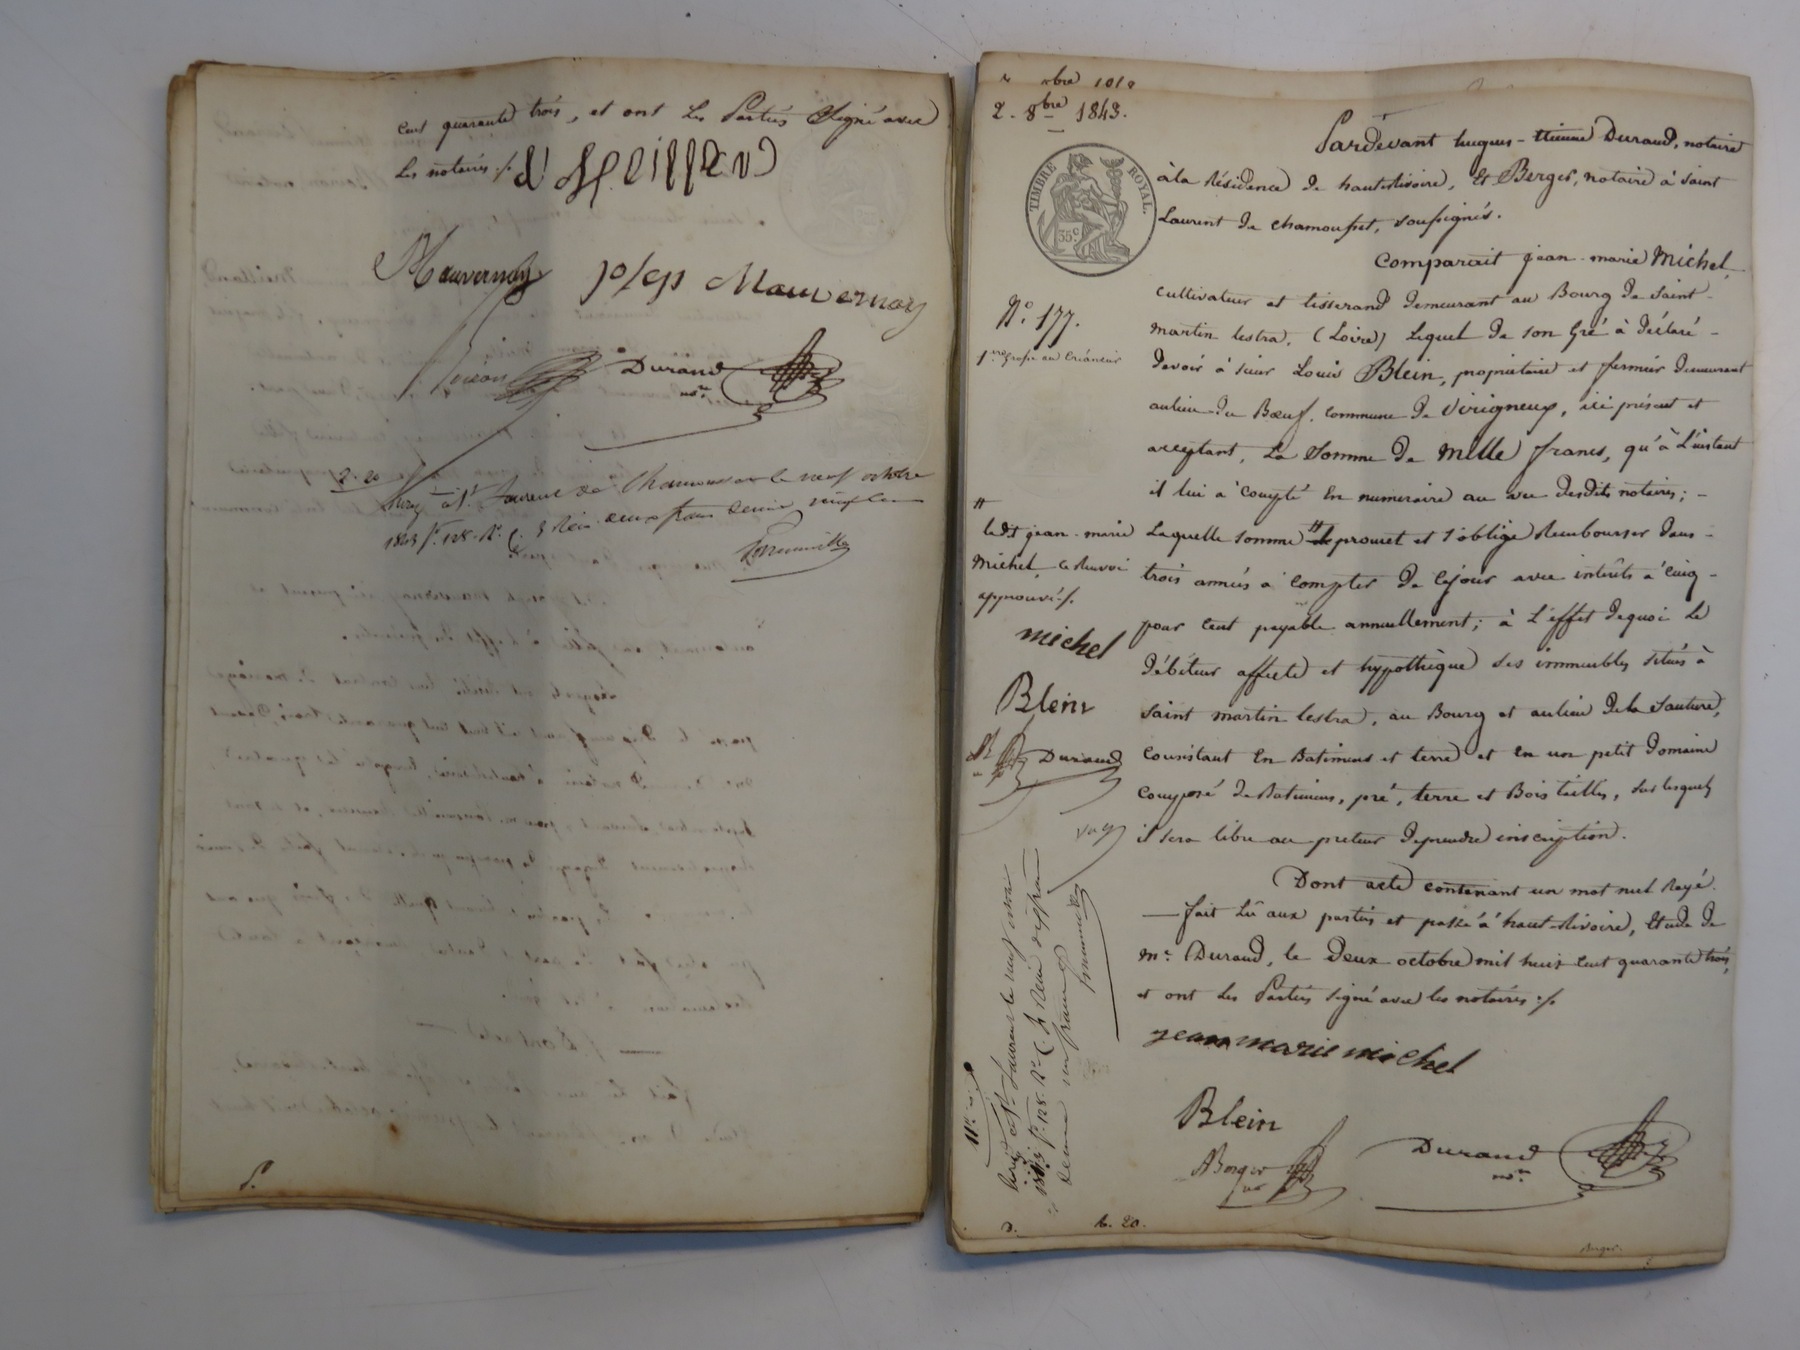 cent quarante trois, et ont les Parties Signé avec
les notaires ./.
Mauvernay
Mauvernay
Durand
nre
2-20
à St Laurent de Chamousset le neuf octobre
1843 fo 128. Ro C. 3 Reçu deux francs decime vingt cen
2. 8bre 1843.
TIMBRE ROYAL.
35 c
No. 177.
1re grosse au Créancier
Pardevant hugues-Etienne Durand, notaire
à la Résidence de haute Rivoire, Et Berger, notaire à Saint
Laurent de Chamousset, soussignés.
Comparait jean-marie Michel,
cultivateur et tisserand demeurant au Bourg de Saint-
martin lestra, (Loire) Lequel de son Gré à déclaré-
devoir à sieur Louis Blein, propriétaire et fermier demeurant
au lieu du Bœuf, commune de Virigneux, ici présent et
acceptant, La Somme de Mille francs, qu'à L'instant
il lui a compté En numeraire au vu desdits notaires; -
Laquelle somme # le promet et s'oblige Rembourser dans-
trois années à compter de Cejour avec intérêts à cinq-
pour Cent payable annuellement; à L'effet dequoi Le
débiteur affecte et hypothèque ses immeubles situés à
saint martin lestra, au Bourg et au lieu de la Sauture,
Consistant En Batimens et terre et en un petit domaine
Composé de Batimens, pré, terre et Bois taillis, sur lesquels
il sera libre au preteur de prendre inscription.
Dont acte contenant un mot nul Rayé.
— fait Lû aux parties et passé à haute-Rivoire, Etude de
me. Durand, le deux octobre mil huit Cent quarante trois,
et ont les Parties signé avec les notaires ./.
jean marie michel
Blein
Berger
nre
Durand
nre
#
ledt jean-marie
Michel, Ce Renvoi
approuvé ./.
michel
Blein
Durand
à St. Laurent le neuf octobre
1843 fo 128. Ro C. 4 Reçu dix francs
decime un franc
Berger.